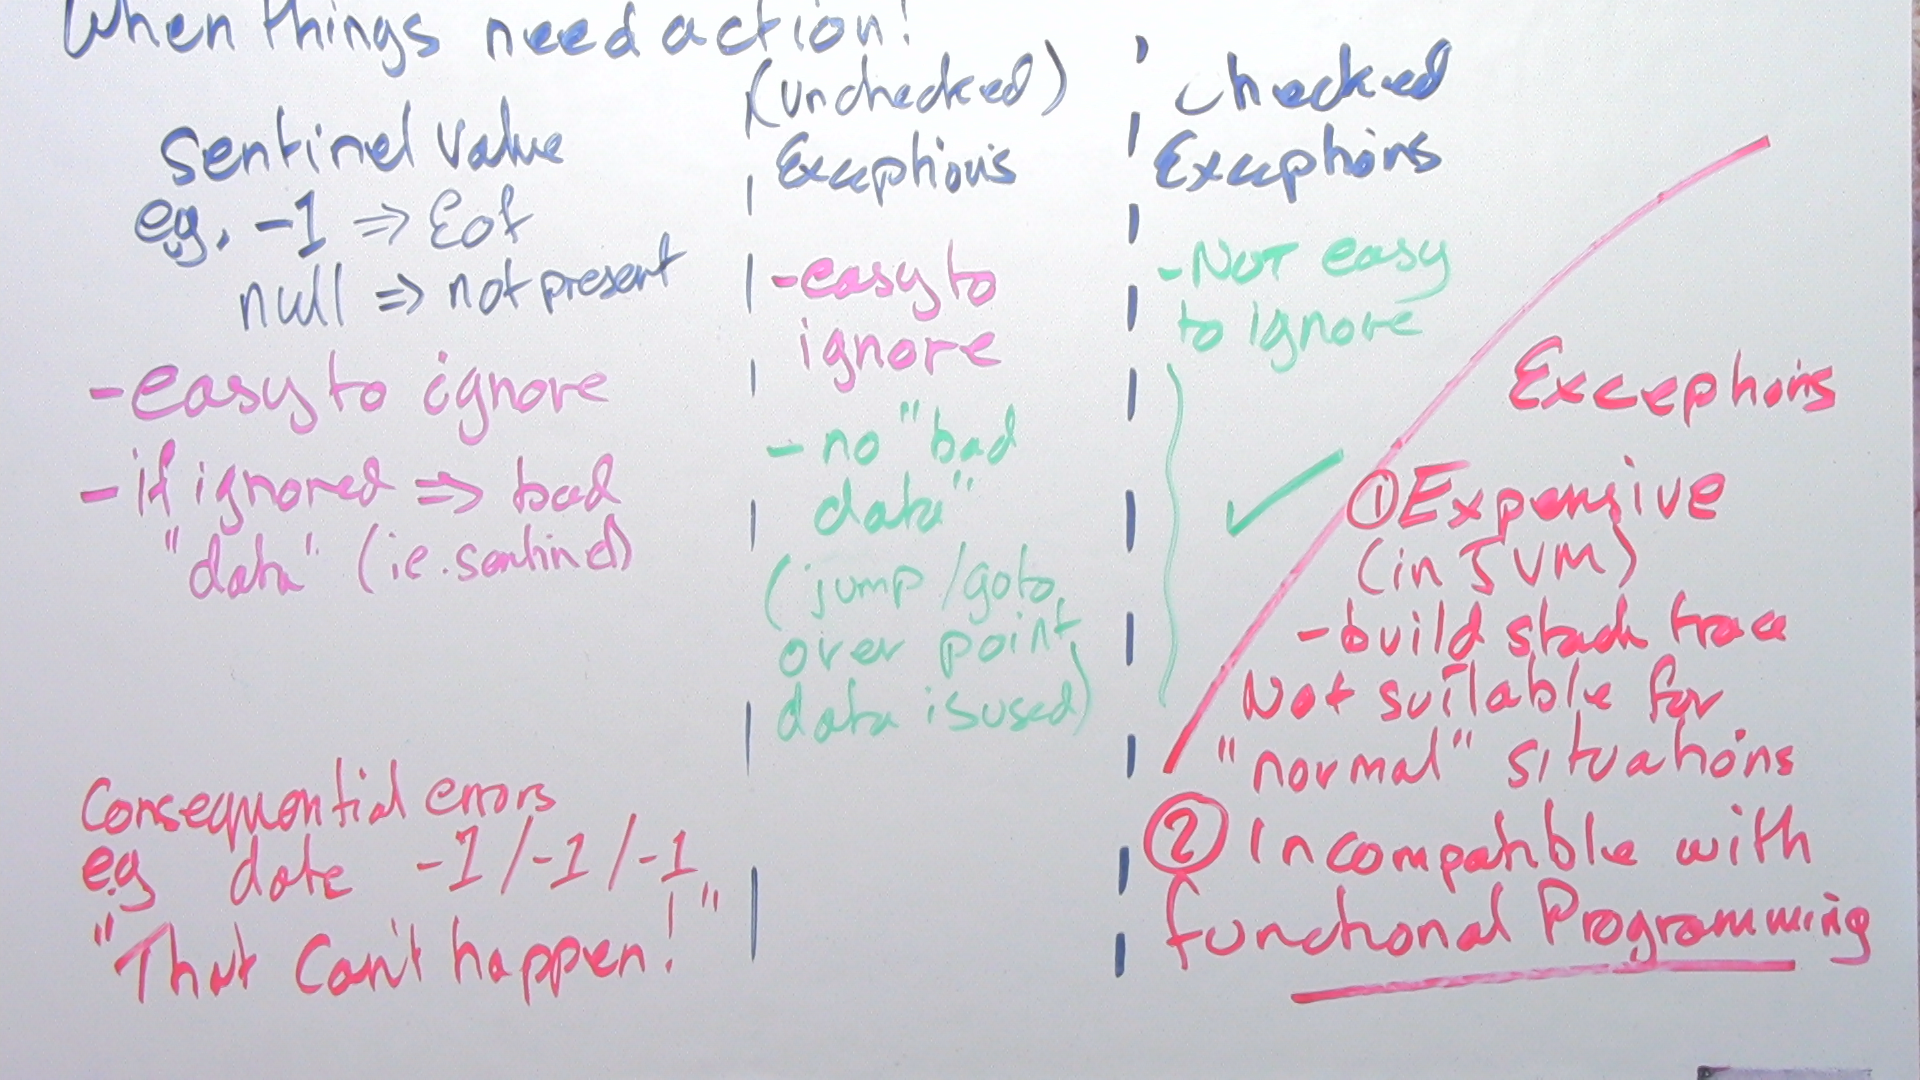 When things need action!
Sentinel value
eg. -1 => Eof
null => not present
- easy to ignore
- if ignored => bad
"data" (ie. sentinel)
Consequential errors
eg date -1/-1/-1
"That Can't happen!"
(unchecked)
Exceptions
- easy to
ignore
- no "bad
data"
(jump/goto
over point
data is used)
Checked
Exceptions
- NOT easy
to ignore
✓
Exceptions
① Expensive
(in JVM)
- build stack trace
Not suitable for
"normal" situations
② Incompatible with
functional Programming